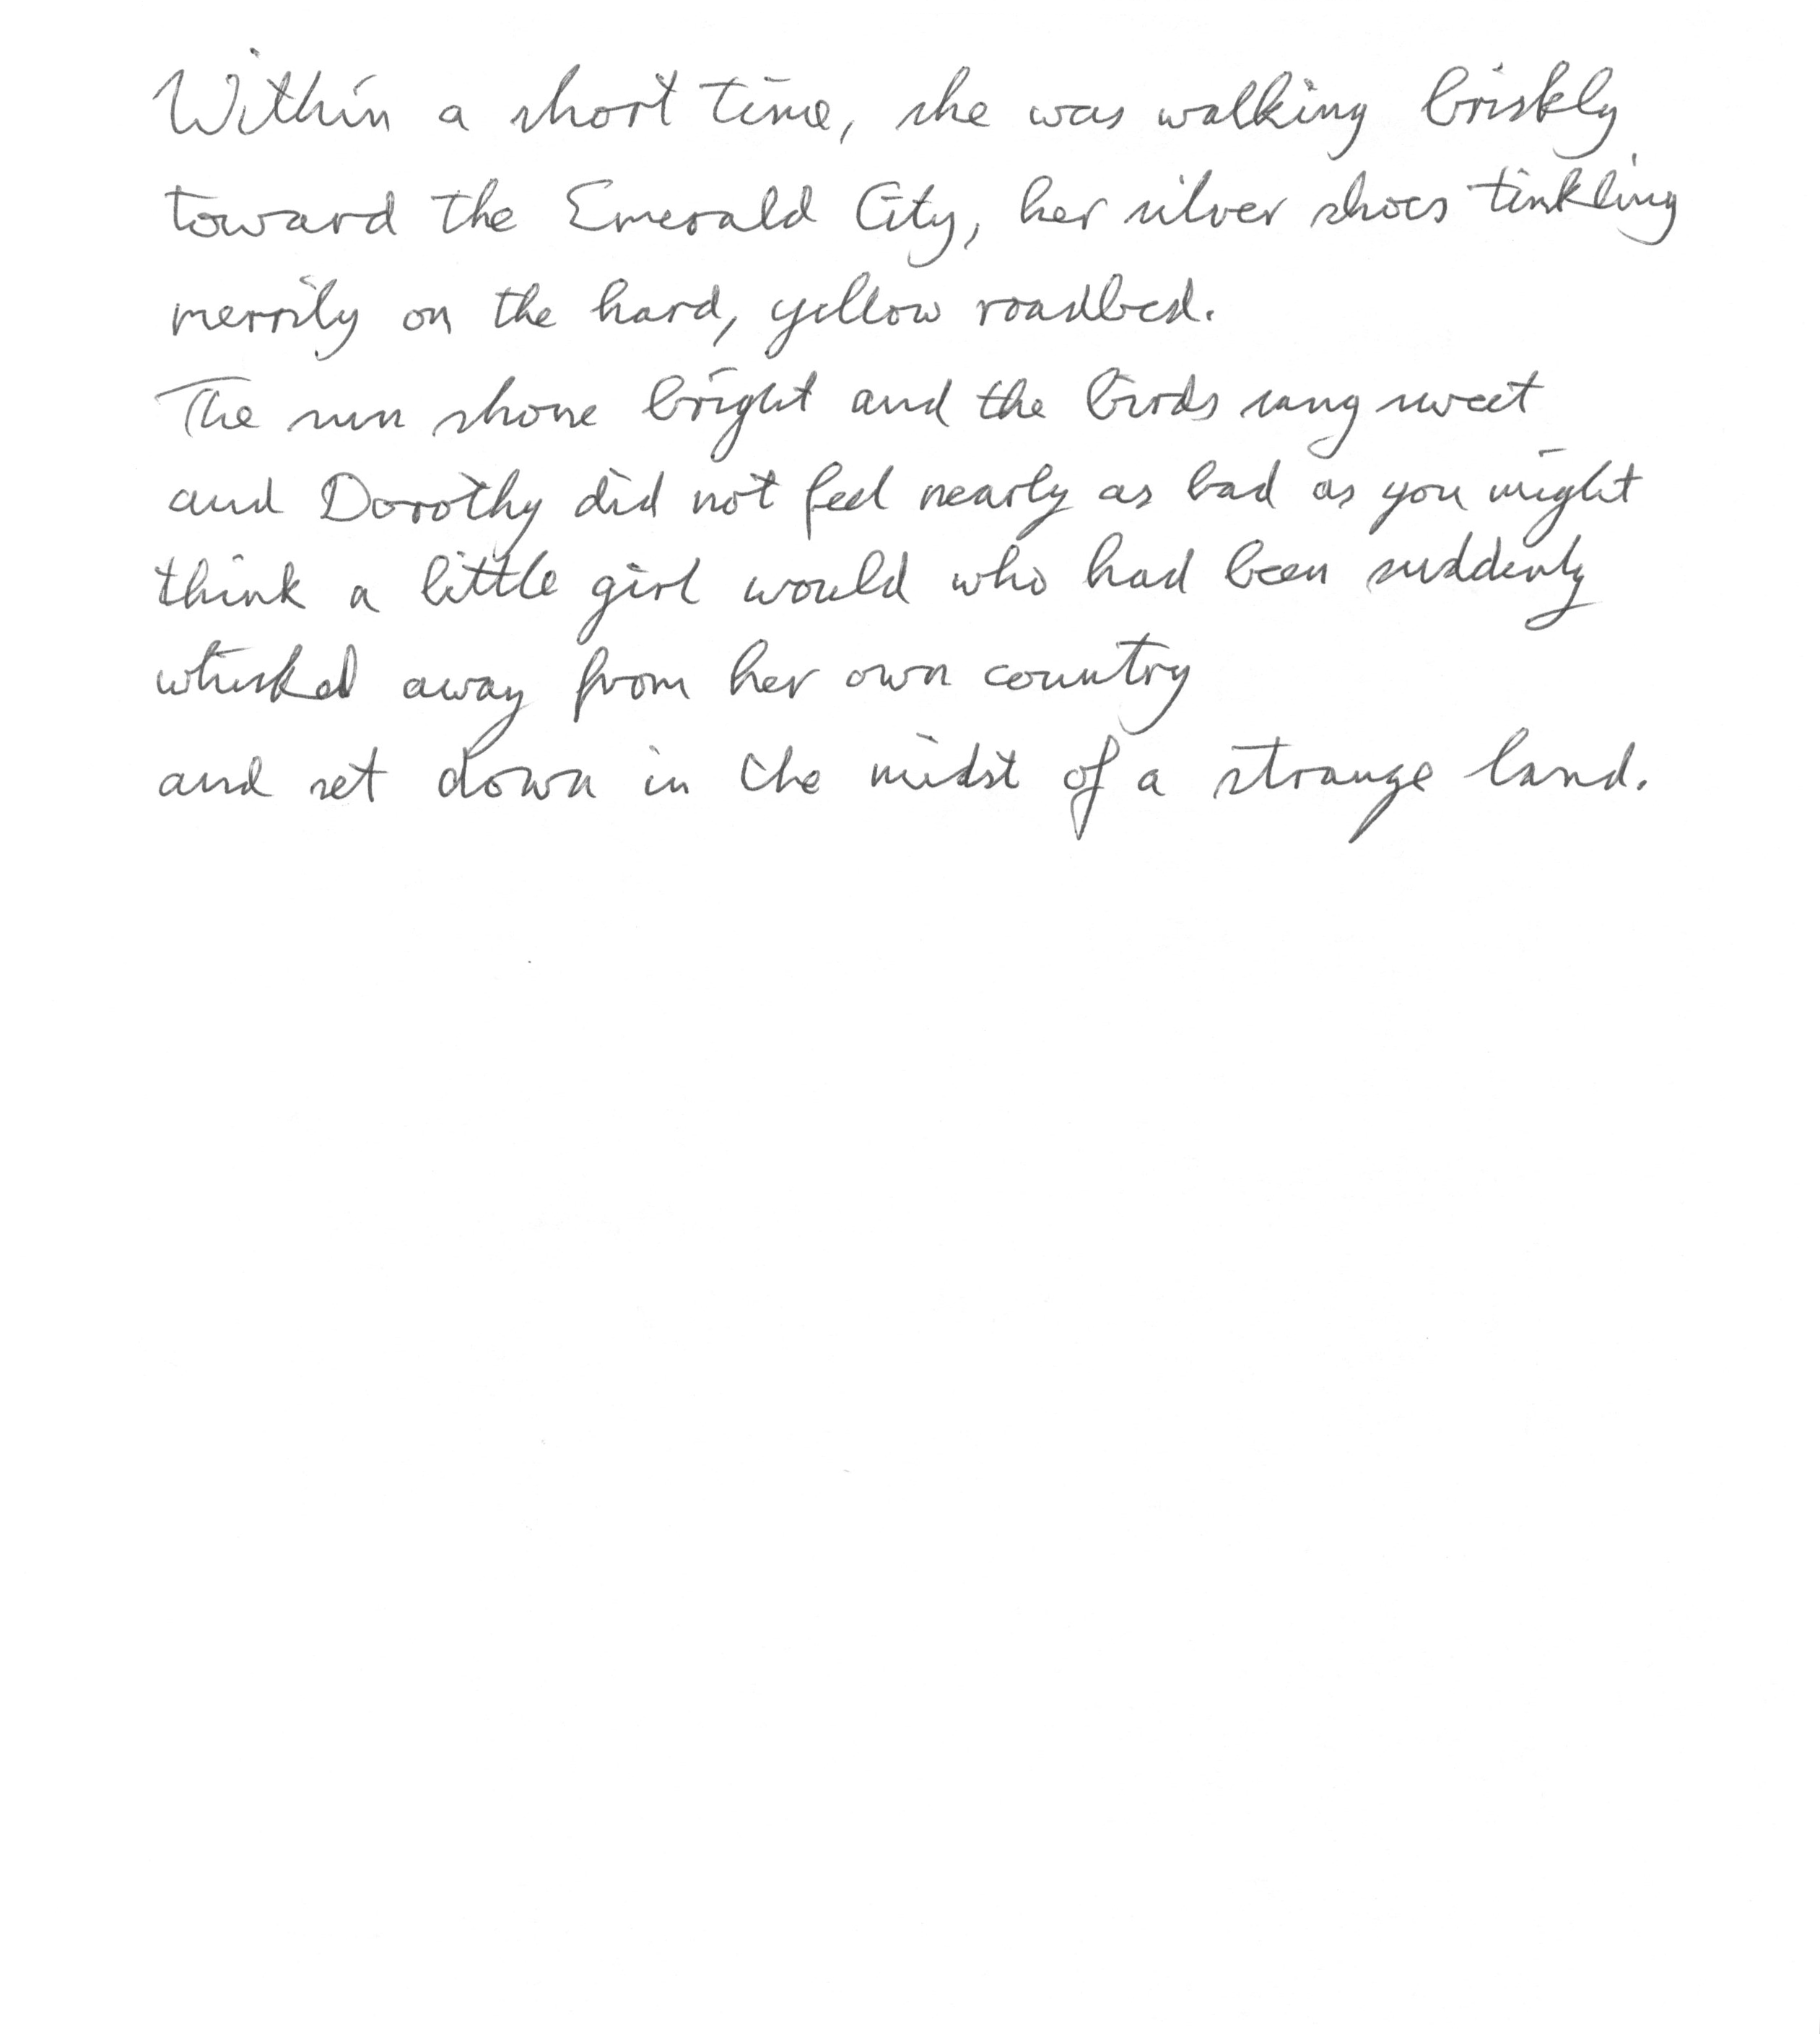 Within a short time, she was walking briskly
toward the Emerald City, her silver shoes tinkling
merrily on the hard, yellow roadbed.
The sun shone bright and the birds sang sweet
and Dorothy did not feel nearly as bad as you might
think a little girl would who had been suddenly
whisked away from her own country
and set down in the midst of a strange land.